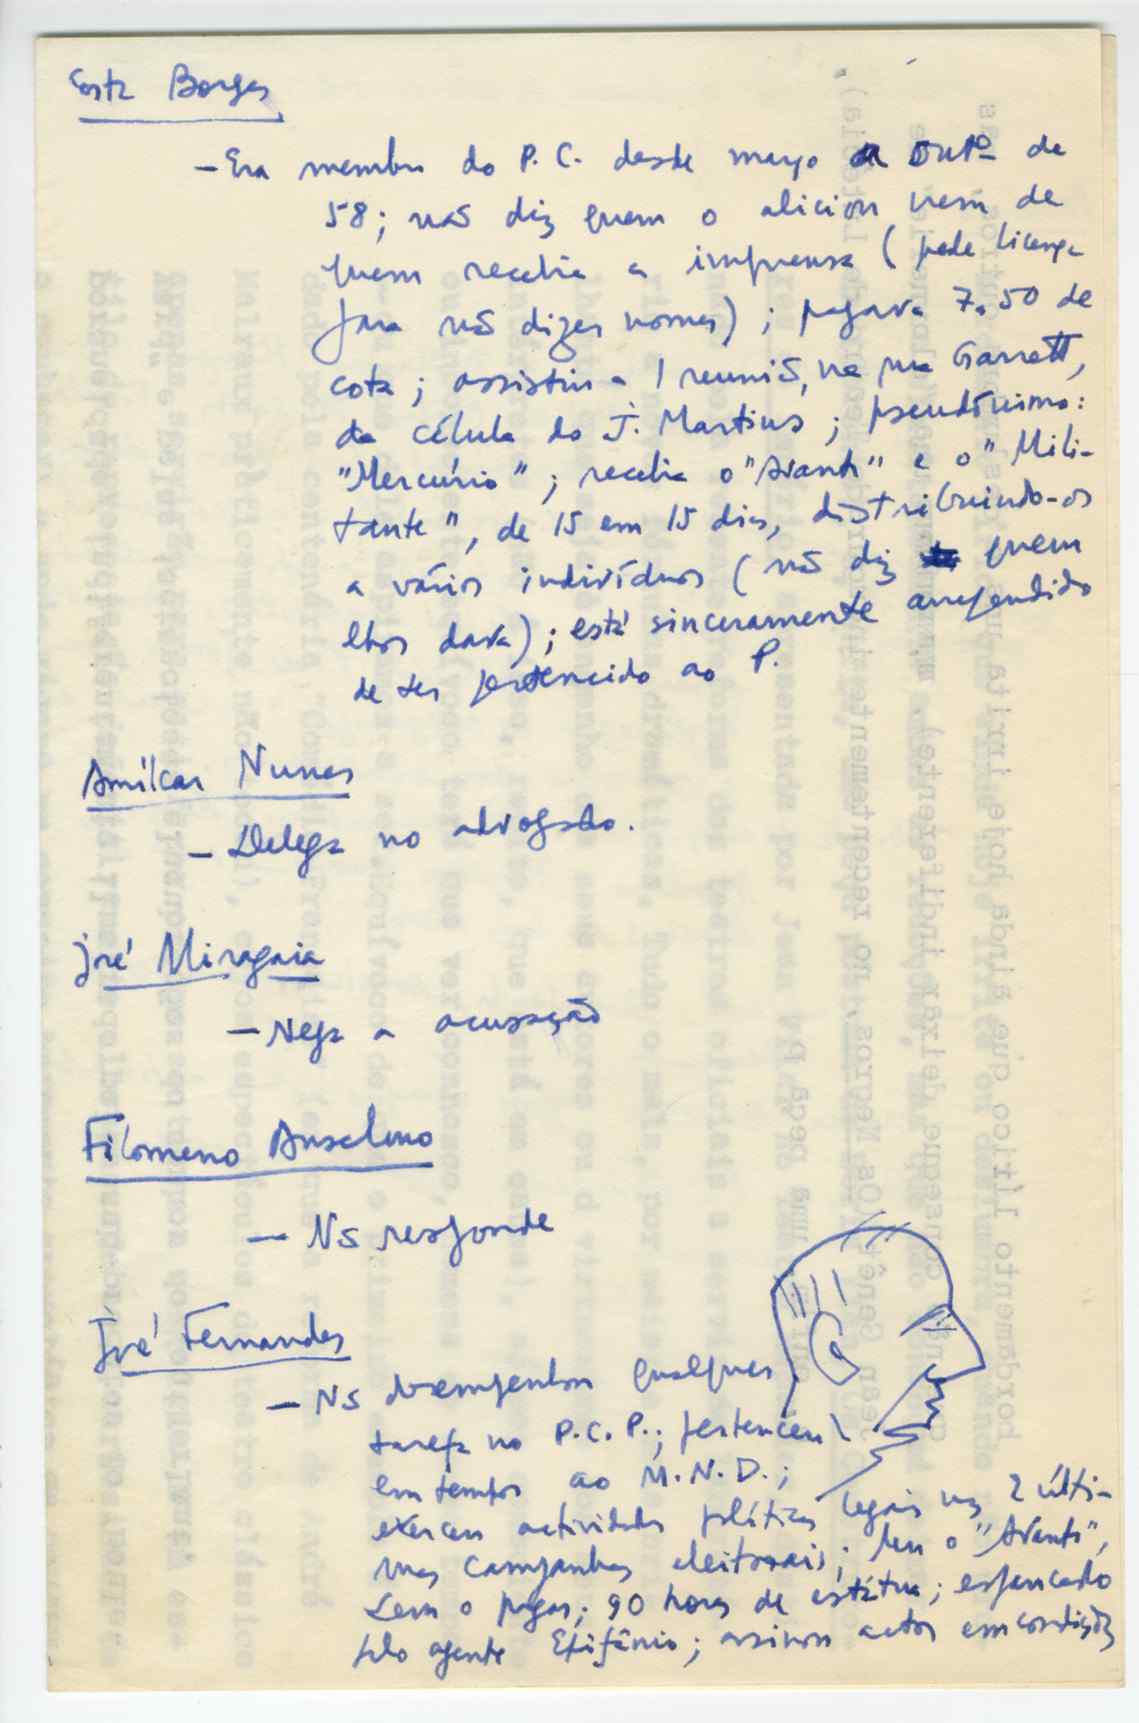 Costa Borges
— Era membro do P. C. desde março a Outº de
58; não diz quem o aliciou nem de
quem recebia a imprensa (pede licença
para não dizer nomes); pagava 7.50 de
cota; assistiu a 1 reunião, na rua Garrett,
da célula do J. Martins; pseudónimo:
"Mercúrio"; recebia o "Avante" e o "Mili-
tante", de 15 em 15 dias, distribuindo-os
a vários indivíduos (não diz quem
lhos dava); está sinceramente arrependido
de ter pertencido ao P.
Amílcar Nunes
— Delega no advogado.
José Miragaia
— Nega a acusação
Filomeno Anselmo
— Ns responde
José Fernandes
— Ns desempenhou qualquer
tarefa no P.C.P.; pertenceu
em tempos ao M.N.D.;
exerceu actividades políticas legais nas 2 últi-
mas campanhas eleitorais; leu o "Avante",
sem o pagar; 90 horas de estátua; espancado
pelo agente Epifânio; assinou autos em condições